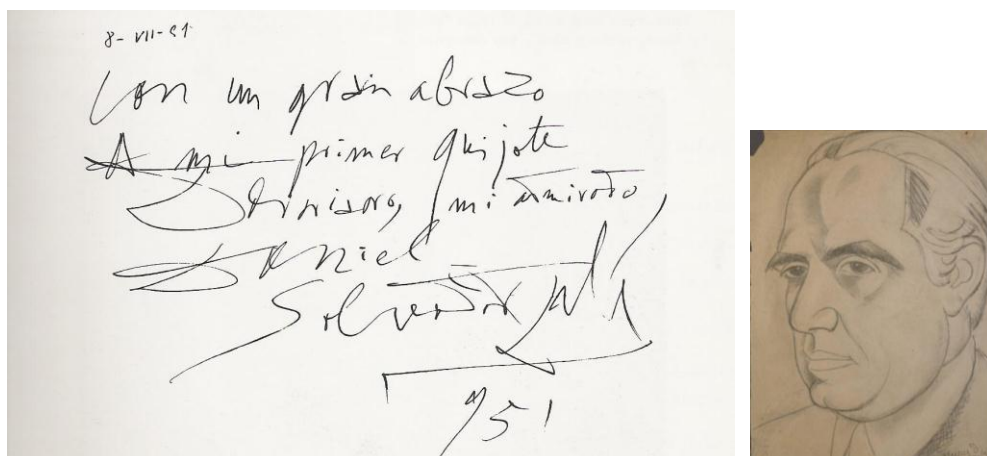 8-VII-51
Con un gran abrazo
A mi primer Quijote
mi admirado,
Daniel
Salvador Dalí
1951